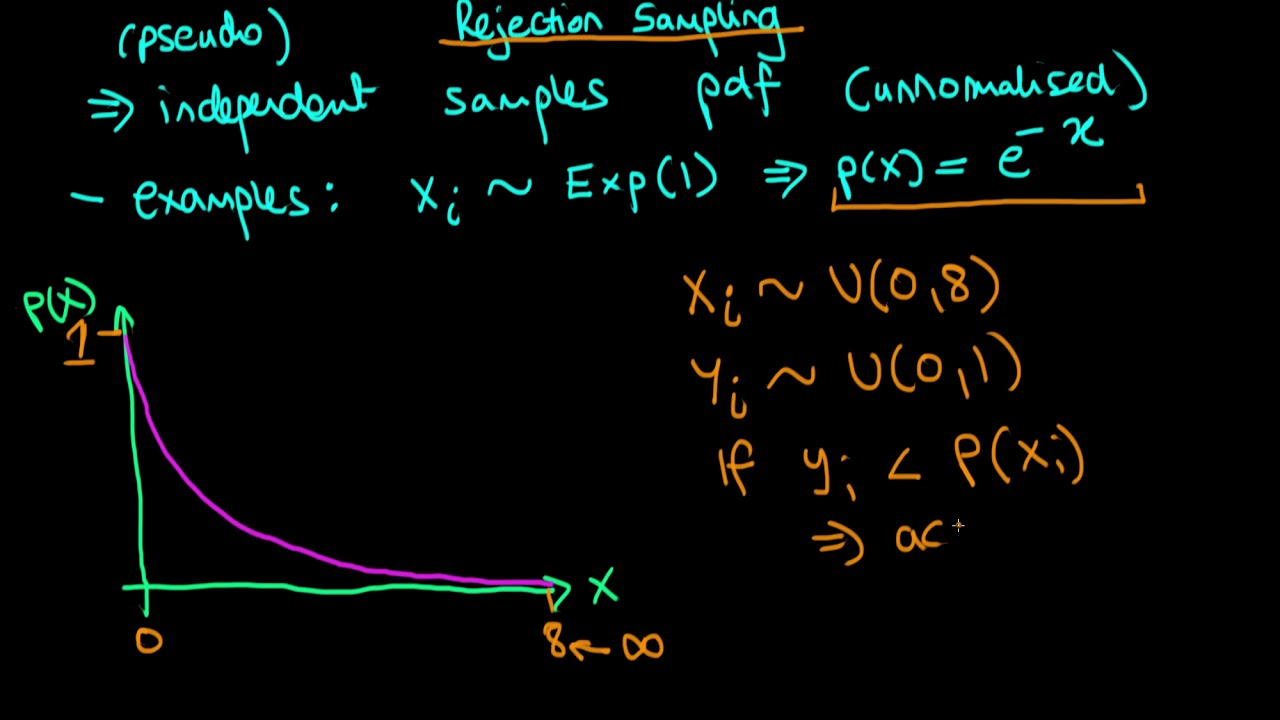 Rejection Sampling
(pseudo)
⇒ independent samples pdf (unnomalised)
- examples: Xi ~ Exp(1) ⇒ p(x) = e^-x
P(x)
1
0
8 ← ∞
X
Xi ~ U(0,8)
Yi ~ U(0,1)
If yi < P(xi)
⇒ ac